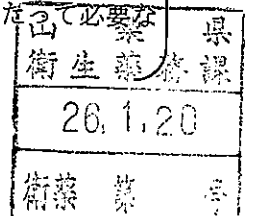 たって必要な
山 県
衛生薬務課
26.1.20
衛薬第 号